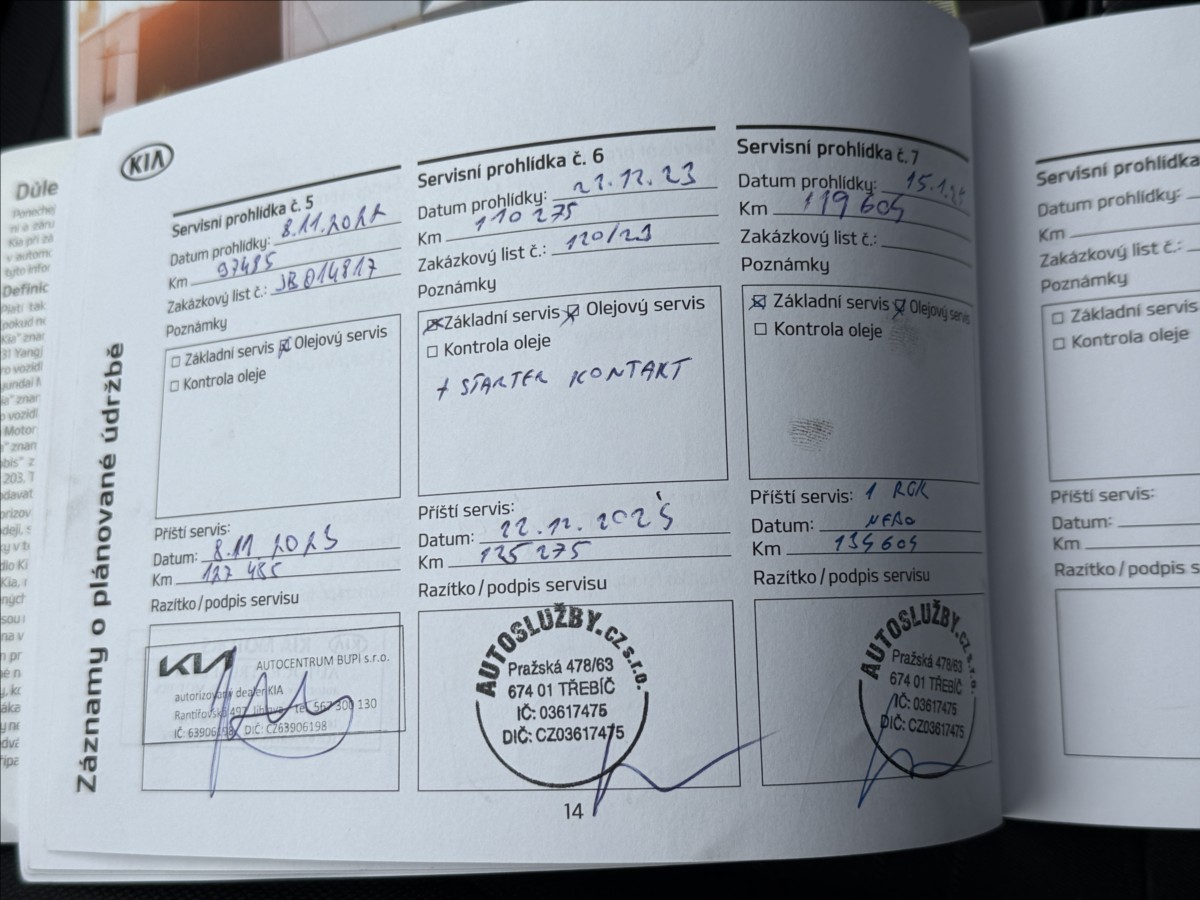 KIA
Záznamy o plánované údržbě
Servisní prohlídka č. 5
Datum prohlídky: 8.11.2022
Km 97485
Zakázkový list č.: JB014817
Poznámky
Základní servis Olejový servis
Kontrola oleje
Příští servis:
Datum: 8.11 2023
Km 127 485
Razítko/podpis servisu
KIA AUTOCENTRUM BUPI s.r.o.
autorizovaný dealer KIA
Rantířovská 497, Jihlava tel. 567 300 130
IČ: 63906198 DIČ: CZ63906198
Servisní prohlídka č. 6
Datum prohlídky: 22.12.23
Km 110 275
Zakázkový list č.: 120/23
Poznámky
Základní servis Olejový servis
Kontrola oleje
+ STARTER KONTAKT
Příští servis:
Datum: 22.12.2025
Km 125 275
Razítko/podpis servisu
AUTOSLUŽBY.CZ s.r.o.
Pražská 478/63
674 01 TŘEBÍČ
IČ: 03617475
DIČ: CZ03617475
Servisní prohlídka č. 7
Datum prohlídky: 15.1.25
Km 119 604
Zakázkový list č.:
Poznámky
Základní servis Olejový servis
Kontrola oleje
Příští servis: 1 ROK
Datum: NEBO
Km 134 604
Razítko/podpis servisu
AUTOSLUŽBY.CZ s.r.o.
Pražská 478/63
674 01 TŘEBÍČ
IČ: 03617475
DIČ: CZ03617475
14
Servisní prohlídka
Datum prohlídky:
Km
Zakázkový list č.:
Poznámky
Základní servis
Kontrola oleje
Příští servis:
Datum:
Km
Razítko/podpis